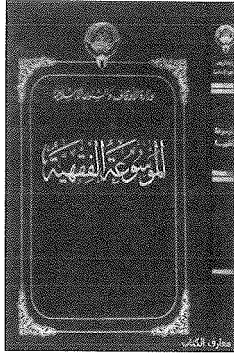 وزارة الأوقاف والشئون الإسلامية
الموسوعة الفقهية
معارف الكتاب